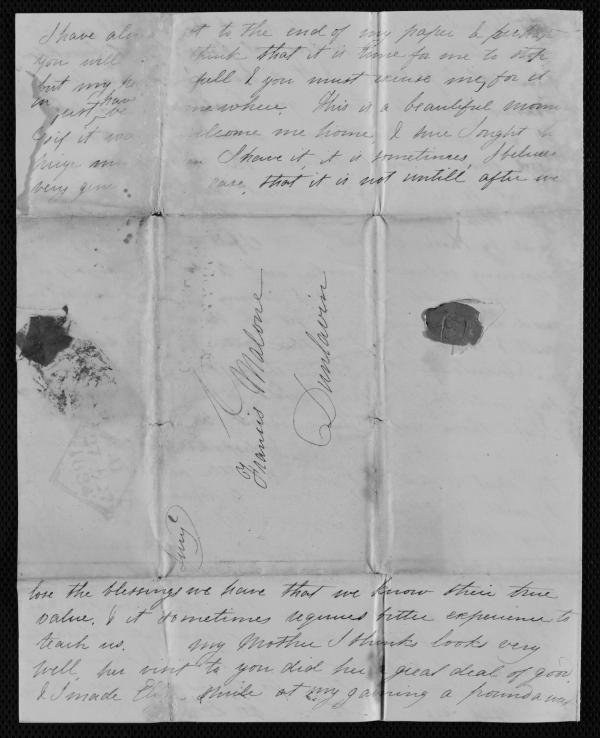 I have alm t to the end of my paper & perhaps
you will think that it is time for me to stop
but my full & you must excuse me, for it
just where. This is a beautiful morn
as if it wo elcome me home I sure I ought
I have it, it is sometimes, I believe
very gen case, that it is not untill after we
Francis Malone
Dunlavin
lose the blessings we have that we know their true
value. & it sometimes requires bitter experience to
teach us. My Mother I think looks very
well, her visit to you did her a great deal of good
& I made smile at my gaining a pound a